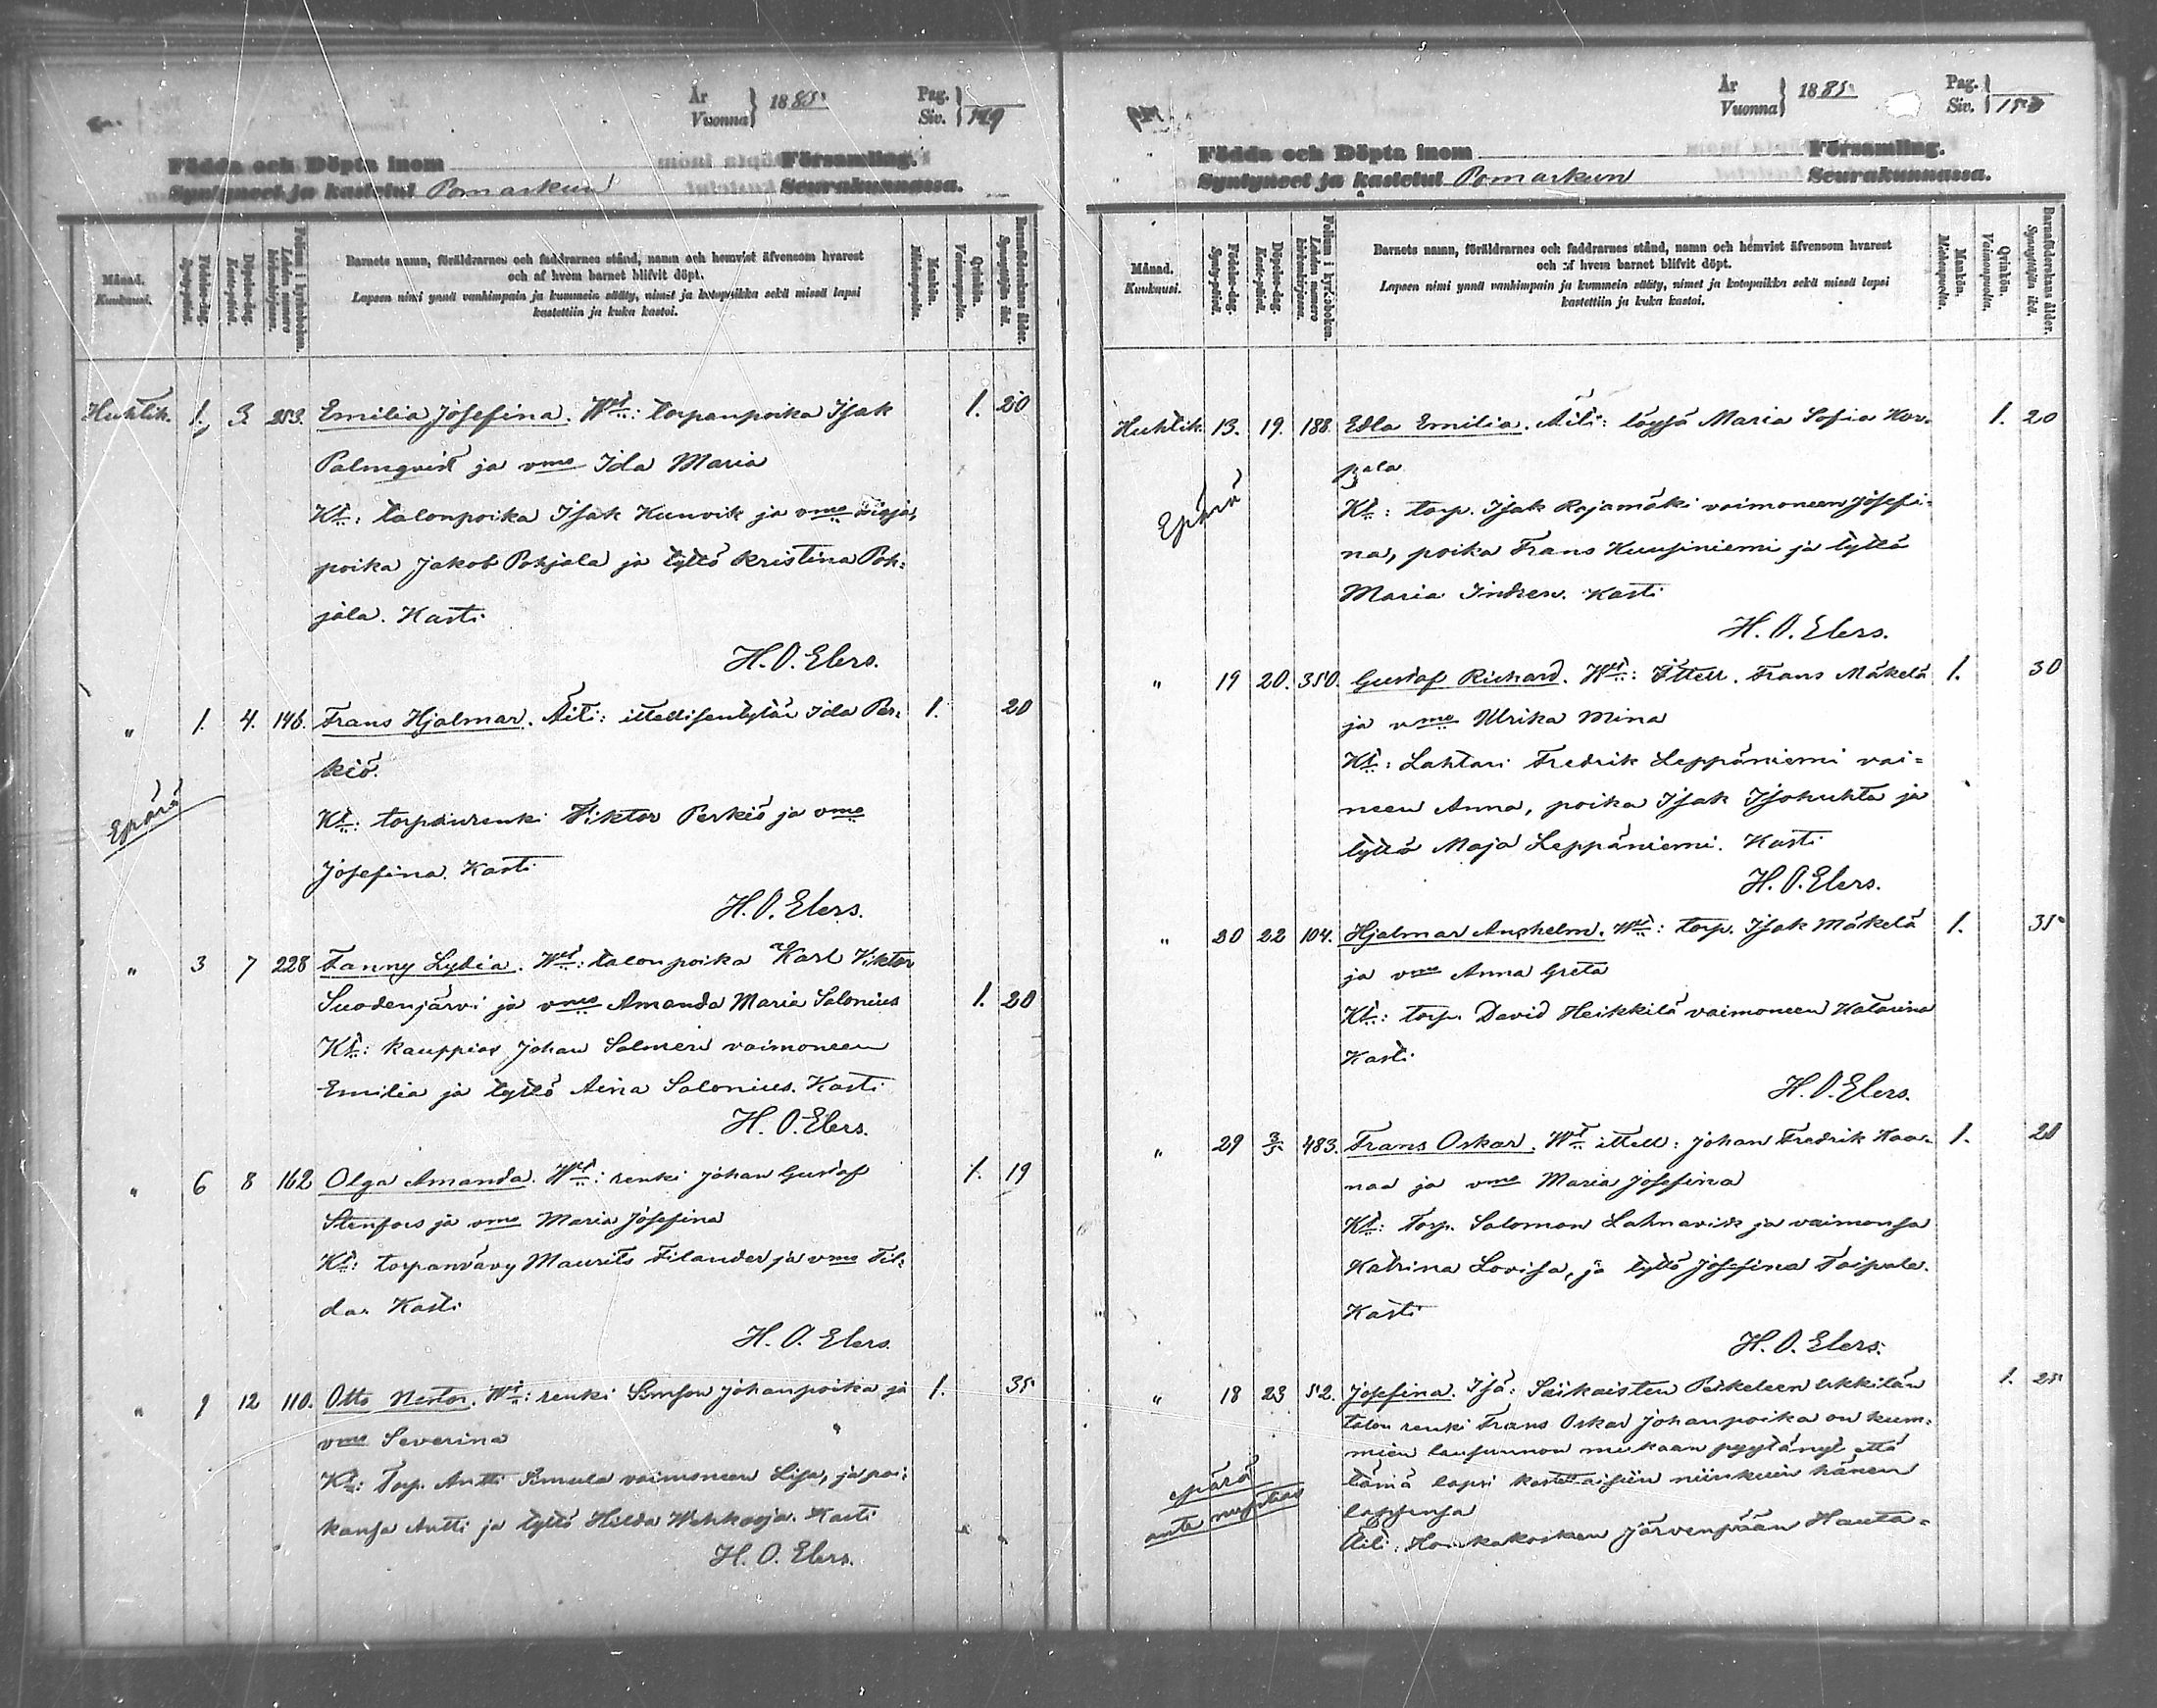 År
Vuonna } 1885.
Pag.
Siv. } 149
Födda och Döpta inom Församling.
Syntyneet ja kastetut Pomarkun Seurakunnassa.
Månad.
Kuukausi.
Födelse-dag.
Synty-päivä.
Döpelse-dag.
Kaste-päivä.
Folium i kyrkoboken.
Lehden numero kirkonkirjassa.
Barnets namn, föräldrarnes och faddrarnes stånd, namn och hemvist äfvensom hvarest
och af hvem barnet blifvit döpt.
Lapsen nimi ynnä vanhimpain ja kummein sääty, nimet ja kotopaikka sekä missä lapsi
kastettiin ja kuka kastoi.
Mankön.
Miehenpuolia.
Qvinkön.
Vaimonpuolia.
Barnaföderskans ålder.
Synnyttäjän ikä.
Huhtik. 1. 3. 253. Emilia Josefina. Wmt: torpanpoika Isak 1. 20
Palmqvist ja vmo Ida Maria
Kt: talonpoika Isak Kunvik ja vmo
poika Jakob Pohjala ja tyttö Kristina Poh-
jala. Kasti
H. O. Elers.
" 1. 4. 146. Frans Hjalmar. Äiti: itsellisentytär Ida Per- 1. 20
kiö.
Epärä
Kt: torpanrenki Viktor Perkiö ja vmo
Josefina. Kasti
H. O. Elers.
" 3 7 228 Fanny Lydia. Wmt: talonpoika Karl Viktor
Suodenjärvi ja vmo Amanda Maria Salonius 1. 20
Kt: kauppias Johan Salmen vaimoneen
Emilia ja tyttö Aina Salonius. Kasti
H. O. Elers.
" 6 8 162 Olga Amanda. Wmt: renki Johan Gustaf 1. 19
Stenfors ja vmo Maria Josefina
Kt: torpanvävy Maurits Filander ja vmo Fil-
da. Kasti
H. O. Elers.
" 9 12 110. Otto Nestor. Wt: renki Simson Johanpoika ja 1. 35
vmo Severina
Kt: Torp. Antti Simula vaimoneen Lisa, ja poi-
kansa Antti ja tyttö Hilda Wehkaoja. Kasti
H. O. Elers.
År
Vuonna } 1885.
Pag.
Siv. } 150
Födda och Döpta inom Församling.
Syntyneet ja kastetut Pomarkun Seurakunnassa.
Månad.
Kuukausi.
Födelse-dag.
Synty-päivä.
Döpelse-dag.
Kaste-päivä.
Folium i kyrkoboken.
Lehden numero kirkonkirjassa.
Barnets namn, föräldrarnes och faddrarnes stånd, namn och hemvist äfvensom hvarest
och af hvem barnet blifvit döpt.
Lapsen nimi ynnä vanhimpain ja kummein sääty, nimet ja kotopaikka sekä missä lapsi
kastettiin ja kuka kastoi.
Mankön.
Miehenpuolia.
Qvinkön.
Vaimonpuolia.
Barnaföderskans ålder.
Synnyttäjän ikä.
Huhtik. 13. 19. 188. Edla Emilia. Äiti: löysä Maria Sofia Kor- 1. 20
pala
Epärä
Kt: torp. Isak Rajamäki vaimoneen Josefi-
na, poika Frans Kuusiniemi ja tyttö
Maria Indren. Kasti
H. O. Elers.
" 19 20. 350. Gustaf Richard. Wmt: Ittell. Frans Mäkelä 1. 30
ja vmo Ulrika Mina
Kt: Lahtari Fredrik Leppäniemi vai-
neen Anna, poika Isak Isohuhta ja
tyttö Maja Leppäniemi. Kasti
H. O. Elers.
" 20 22 104. Hjalmar Anshelm. Wmt: torp. Isak Mäkelä 1. 35
ja vmo Anna Greta
Kt: torp. David Heikkilä vaimoneen Katarina
Kasti
H. O. Elers.
" 29 3/5 483. Frans Oskar. Wt ittell: Johan Fredrik Kaa- 1. 20
naa ja vmo Maria Josefina
Kt: Torp. Salomon Lahnavik ja vaimonsa
Katrina Lovisa, ja tyttö Josefina Taipale.
Kasti
H. O. Elers.
" 18 23 52. Josefina. Isä: Siikaisten Peikeleen Ukkilän 1. 25
talon renki Frans Oskar Johanpoika on kum-
mien lausunnon mukaan pyytänyt että
tämä lapsi kastettaisiin niinkuin hänen
lapsensa
epärä
ante nuptias
Äiti: Honkakosken Järvenpään Hauta-